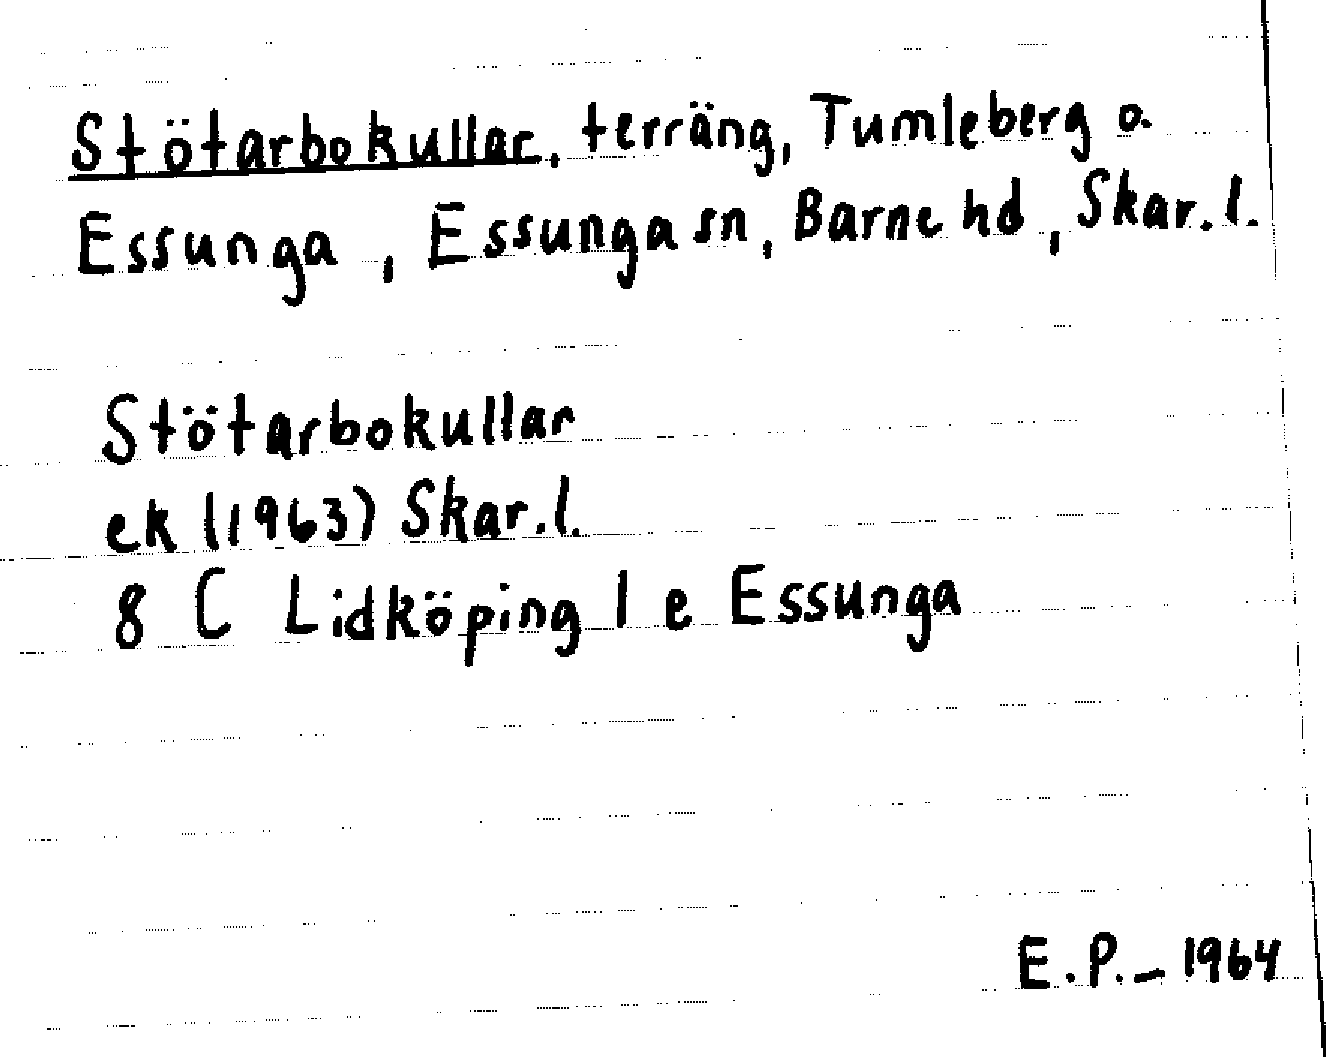 Stötarbokullar, terräng, Tumleberg o.
Essunga, Essunga sn, Barne hd, Skar. l.
Stötarbokullar
ek (1963) Skar. l.
8 C Lidköping l e Essunga
E.P. - 1964